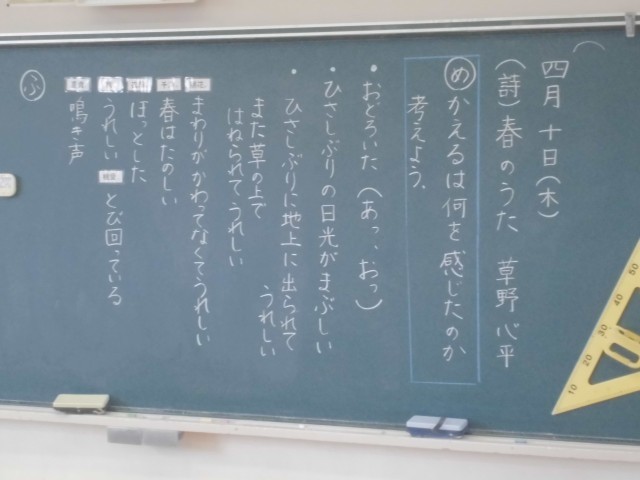 四月十日(木)
(詩)春のうた 草野心平
めかえるは何を感じたのか
考えよう。
・おどろいた(あっ、おっ)
・ひさしぶりの日光がまぶしい
・ひさしぶりに地上に出られて
うれしい
また草の上で
はねられてうれしい
まわりがかわってなくてうれしい
春はたのしい
ほっとした
うれしい とび回っている
鳴き声
ふ
10
20
30
40
50